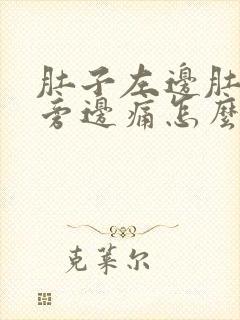 肚子左邊肚
旁邊痛怎麼
克萊尔